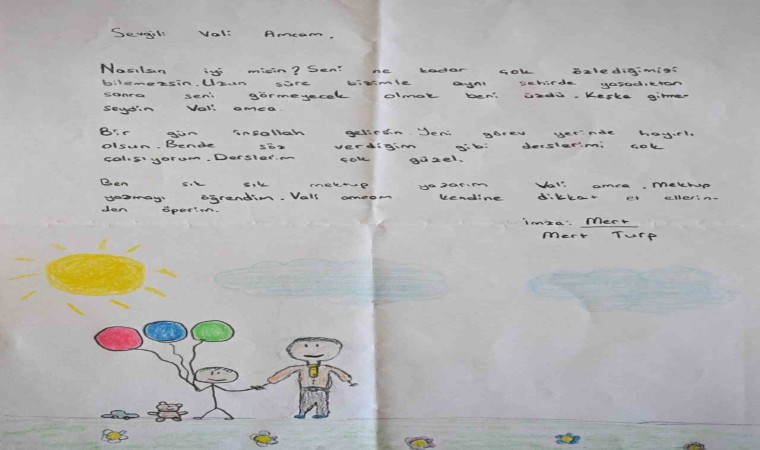 Sevgili Vali Amcam.
Nasılsın iyi misin? Seni ne kadar çok özlediğimizi
bilemezsin. Uzun süre bizimle aynı şehirde yaşadıktan
sonra seni görmeyecek olmak beni üzdü. Keşke gitme-
seydin Vali amca.
Bir gün inşallah gelirsin. Yeni görev yerinde hayırlı
olsun. Bende söz verdiğim gibi derslerimi çok
çalışıyorum. Derslerim çok güzel.
Ben sık sık mektup yazarım Vali amca. Mektup
yazmayı öğrendim. Vali amcam kendine dikkat et ellerin-
den öperim.
imza: Mert
Mert Turp